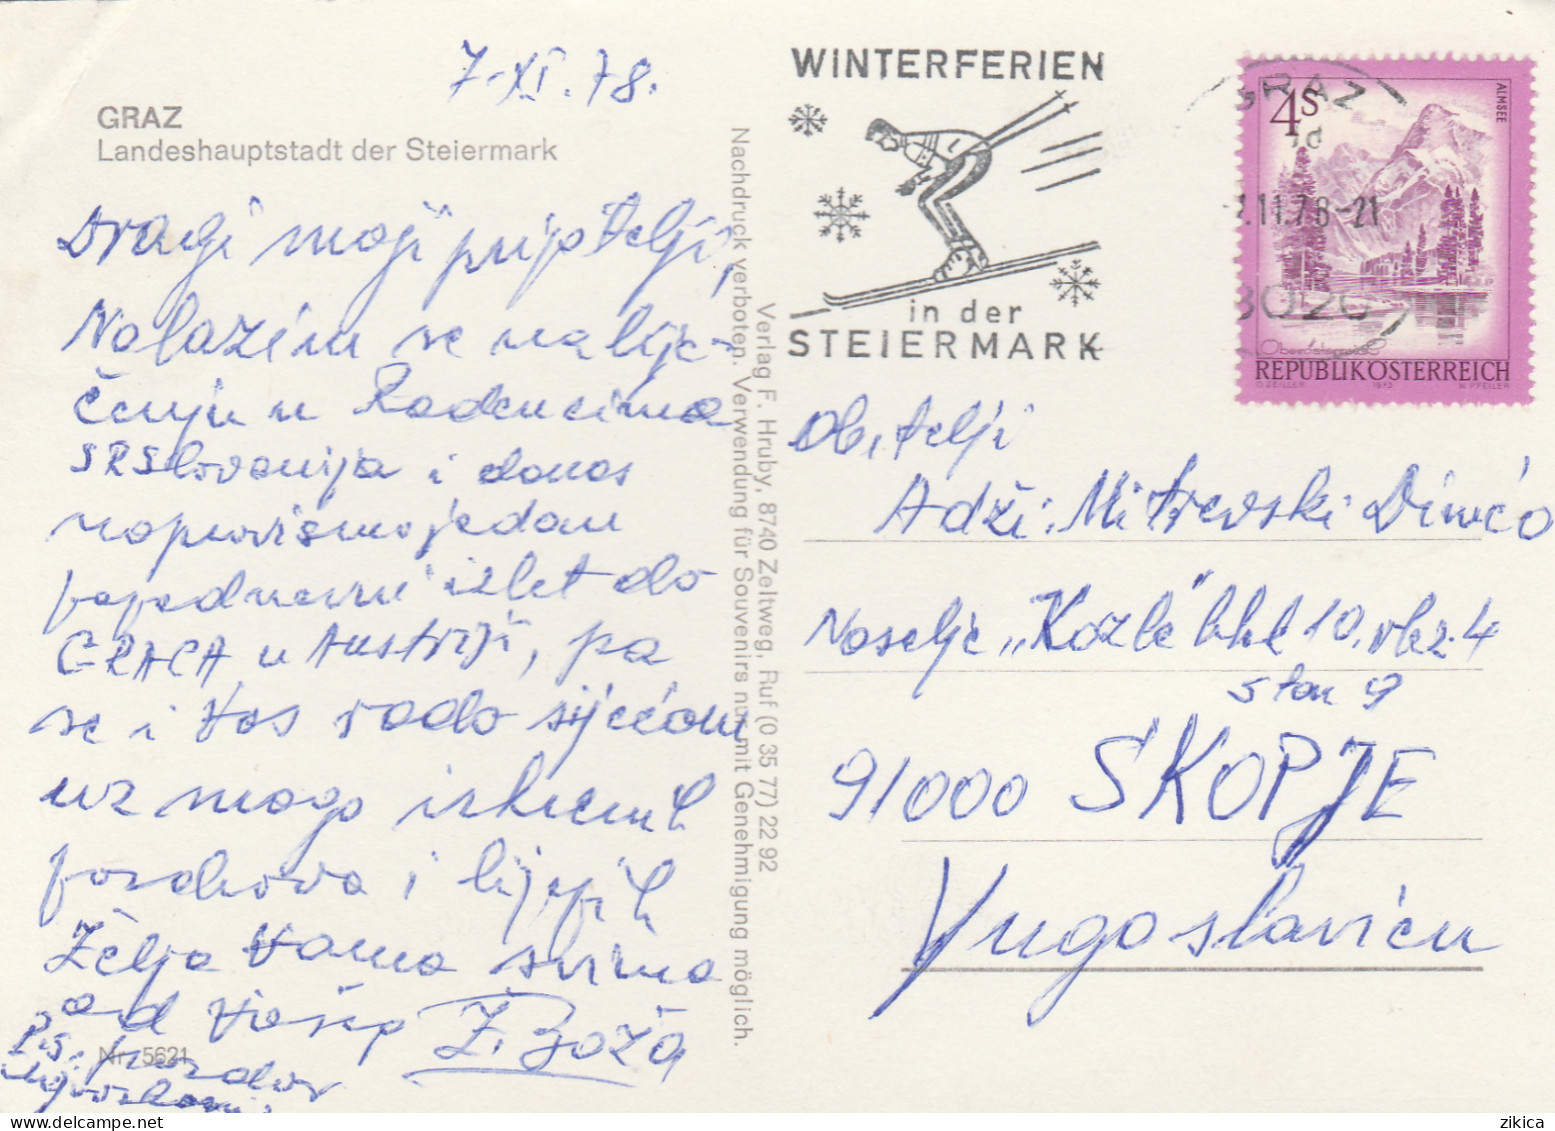 7.XI.78.
GRAZ
Landeshauptstadt der Steiermark
Dragi moji prijatelji,
Nalazim se na lije-
čenju u Radencima
SRSlovenija i danas
napravismo jedan
popodnevni izlet do
GRACA u Austriji, pa
se i Vas rado sjećam
uz mogo iskrenih
pozdrava i lijepih
Želja Vama svima
od Vašeg Ž. Boža
P.S. pozdrav
Nr. 5621
Verlag F. Hruby, 8740 Zeltweg, Ruf (0 35 77) 22 92
Nachdruck verboten. Verwendung für Souvenirs nur mit Genehmigung möglich.
WINTERFERIEN
in der
STEIERMARK
GRAZ
.11.78-21
8020
4S
ALMSEE
Oberösterreich
REPUBLIK ÖSTERREICH
O. ZEILLER 1973 W. PFEILER
Obitelji
Adži-Mitrevski Dimčo
Naselje "Kozle" blok 10, vlez. 4
stan 9
91000 SKOPJE
Yugoslavien
zikica